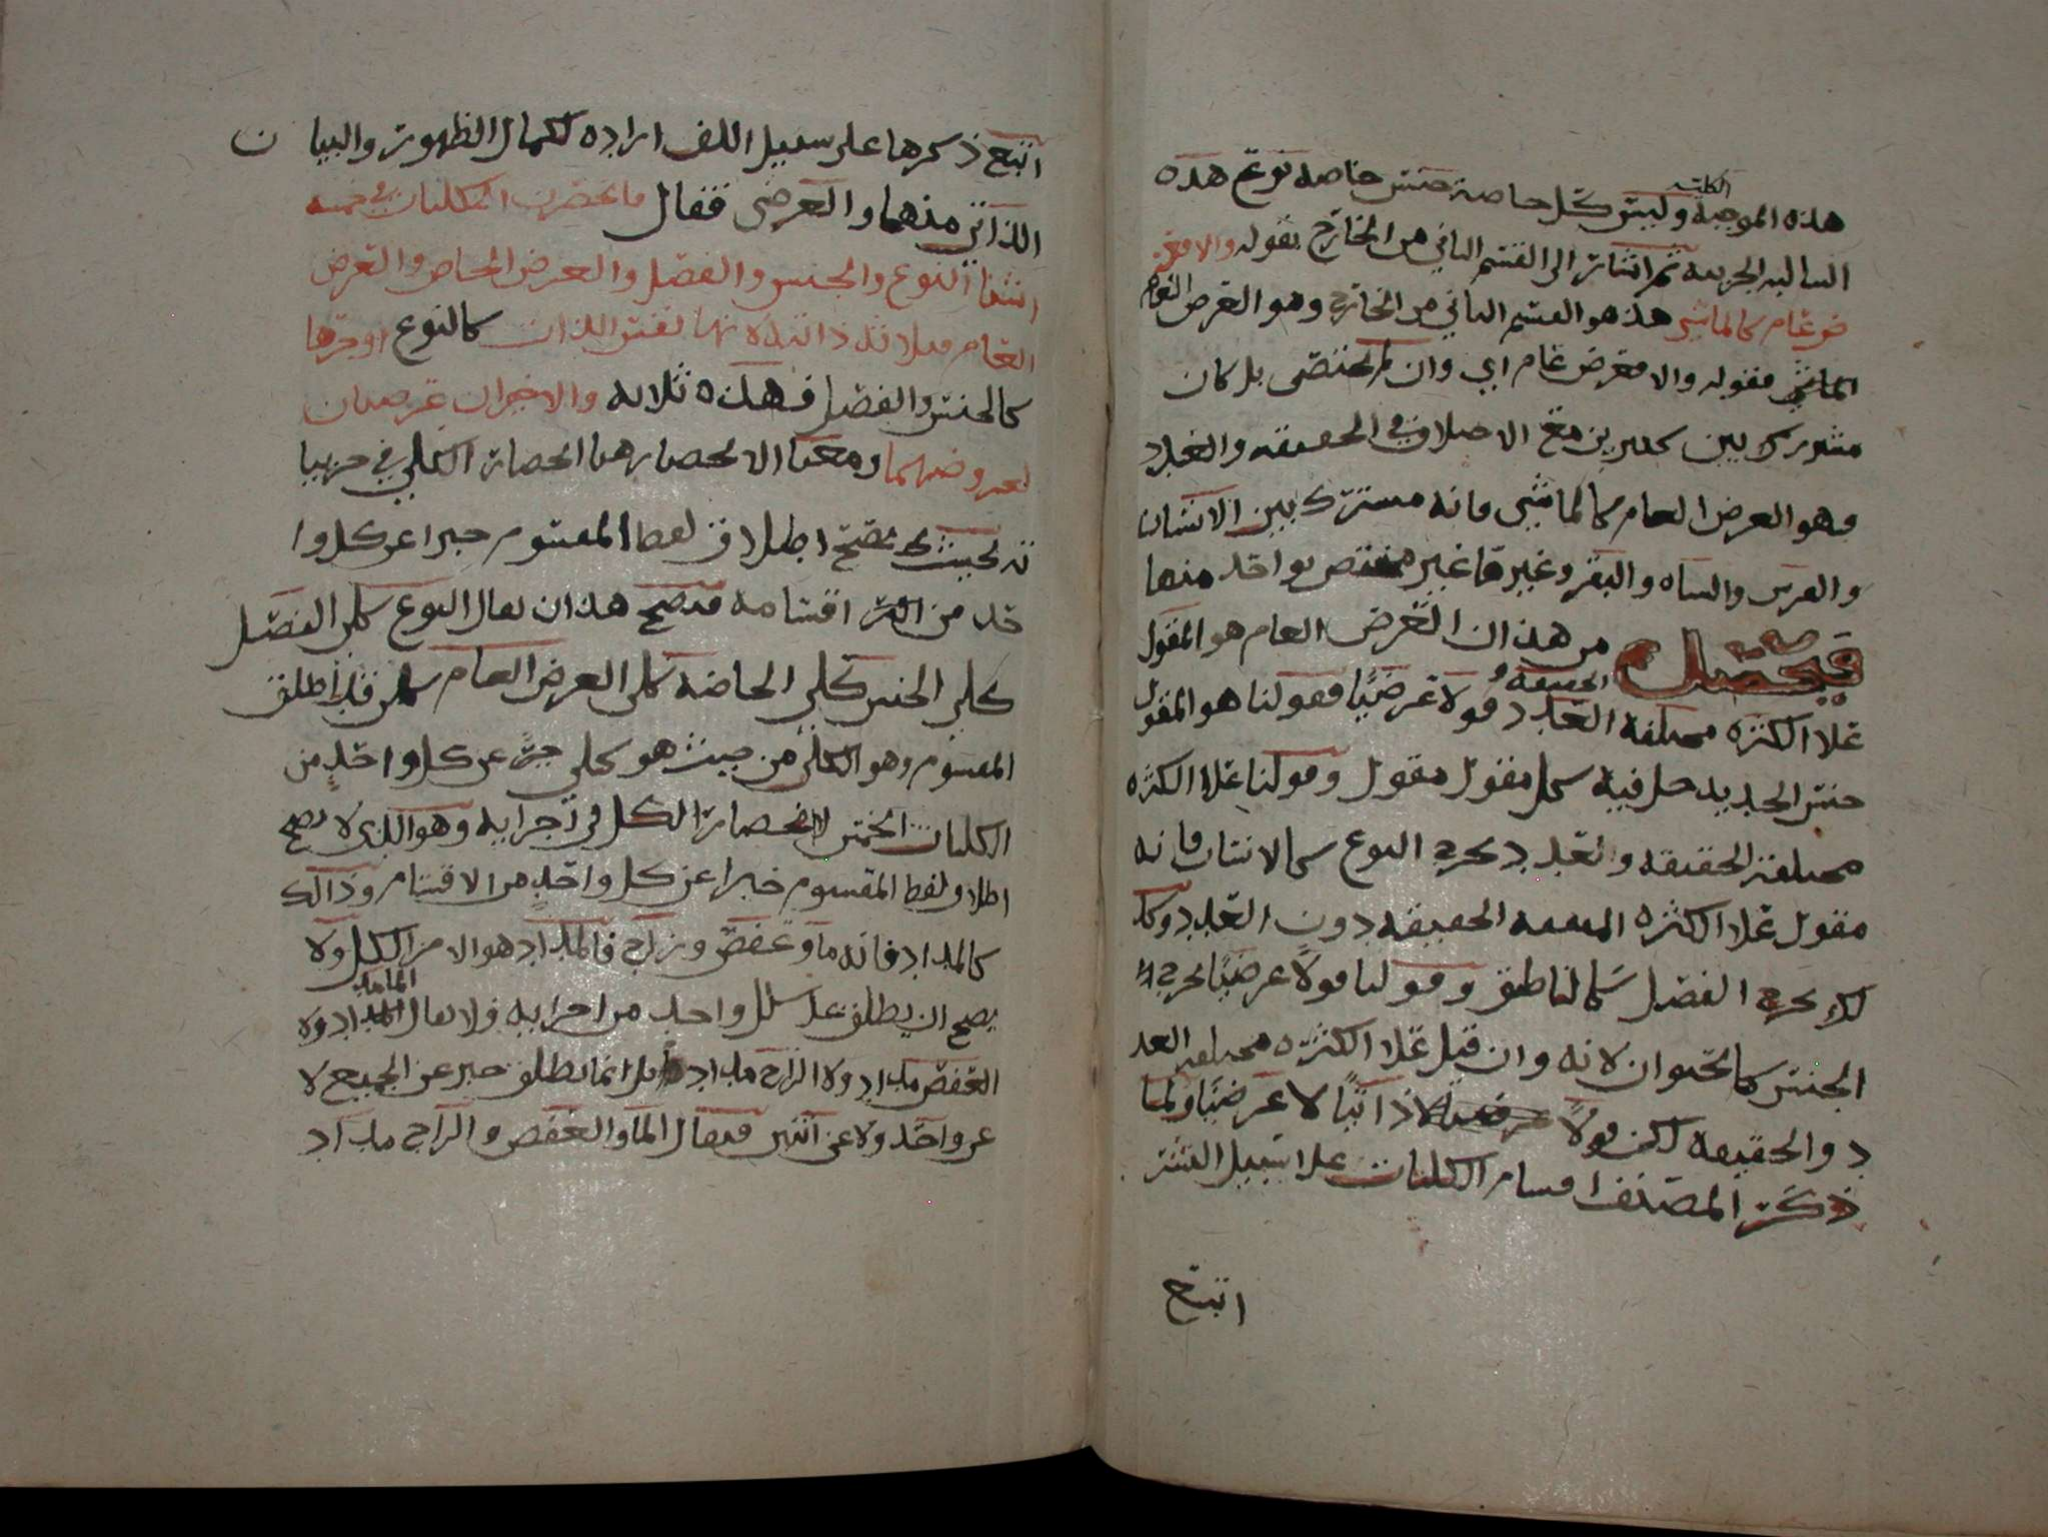 هذه الموجبة الكلية وليس كل خاصة جنس خاصة نوع هذه
السالبة الجزئية ثم اشار الى القسم الثاني من الخارج بقوله والا فعر
ض عام كالماشي هذ هو القسم الثاني من الخارج وهو العرض العام
الماشي فقوله والا فعرض عام اي وان لم يختص بل كان
مشترك بين كثيرين مع الاختلاف في الحقيقة والعدد
فهو العرض العام كالماشي فانه مشترك بين الانسان
والفرس والشاه والبقر وغيرها غير مختص بواحد منها
فحصل من هذا ان العرض العام هو المقول
علا الكثرة مختلفة العدد والحقيقة قولا عرضيًا فقولنا هو المقول
جنس الحد يدخل فيه كل مقول مقول وقولنا علا الكثره
مختلفة الحقيقة والعدد يخرج النوع كالانسان فانه
مقول علا الكثره المتفقه الحقيقه دون العدد وكذ
لك يخرج الفصل كالناطق وقولنا قولاً عرضيًا يخرج
الجنس كالحيوان لانه وان قيل علا الكثره مختلفة العد
د والحقيقه لكن قولاً ذاتيًا لا عرضيًا ولما
ذكر المصنف اقسام الكليات علا سبيل النشر
اتبع
اتبع ذكرها على سبيل اللف اراده لكمال الظهور والبيان
الذاتي منهما والعرضي فقال فانحصرت الكليات في خمسة
اشيا النوع والجنس والفصل والعرض الخاص والعرض
العام فثلاثة ذاتية لانها نفس الذات كالنوع او جزها
كالجنس والفصل فهذه ثلاثه والاخيران عرضيان
لعروضهما ومعنا الانحصار هنا انحصار الكلي في جزييا
ته بحيث يصح اطلاق لفظ المقسوم خبرا عن كل وا
حد من اقسامه فيصح هذا ان يقال النوع كلي الفصل
كلي الجنس كلي الخاصه كلي العرض العام كلي فقد اطلق
المقسوم وهو الكلي من حيث هو كلي خبر عن كل واحد من
الكليات الخمس لا انحصار الكل في اجزايه وهو الذي لا يصح
اطلاق لفظ المقسوم خبرا عن كل واحدٍ من الاقسام وذالك
كالمداد فانه ماوعفص وزاج فالمداد هو الا من الكل ولا
يصح ان يطلق علا كل واحد من اجزايه فلا يقال الما مداد ولا
العفص مداد ولا الزاج مداد بل انما يطلق خبر عن الجميع لا
عن واحد ولا عن اثنين فيقال الما والعفص والزاج مداد